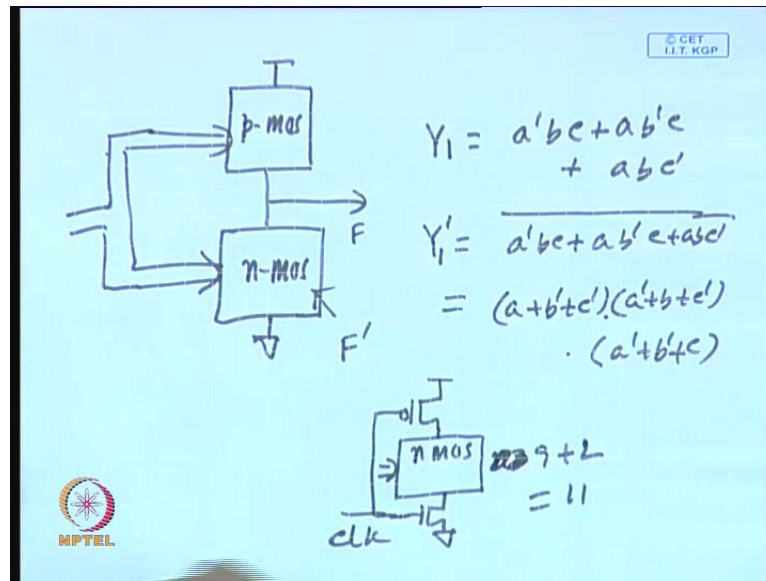 © CET
I.I.T. KGP
p-mos
F
n-mos
F'
Y₁ = a'bc + ab'c
+ abc'
Y₁' = a'bc + ab'c + abc'
= (a+b'+c').(a'+b+c')
. (a'+b'+c)
n mos
9 + 2
= 11
clk
NPTEL